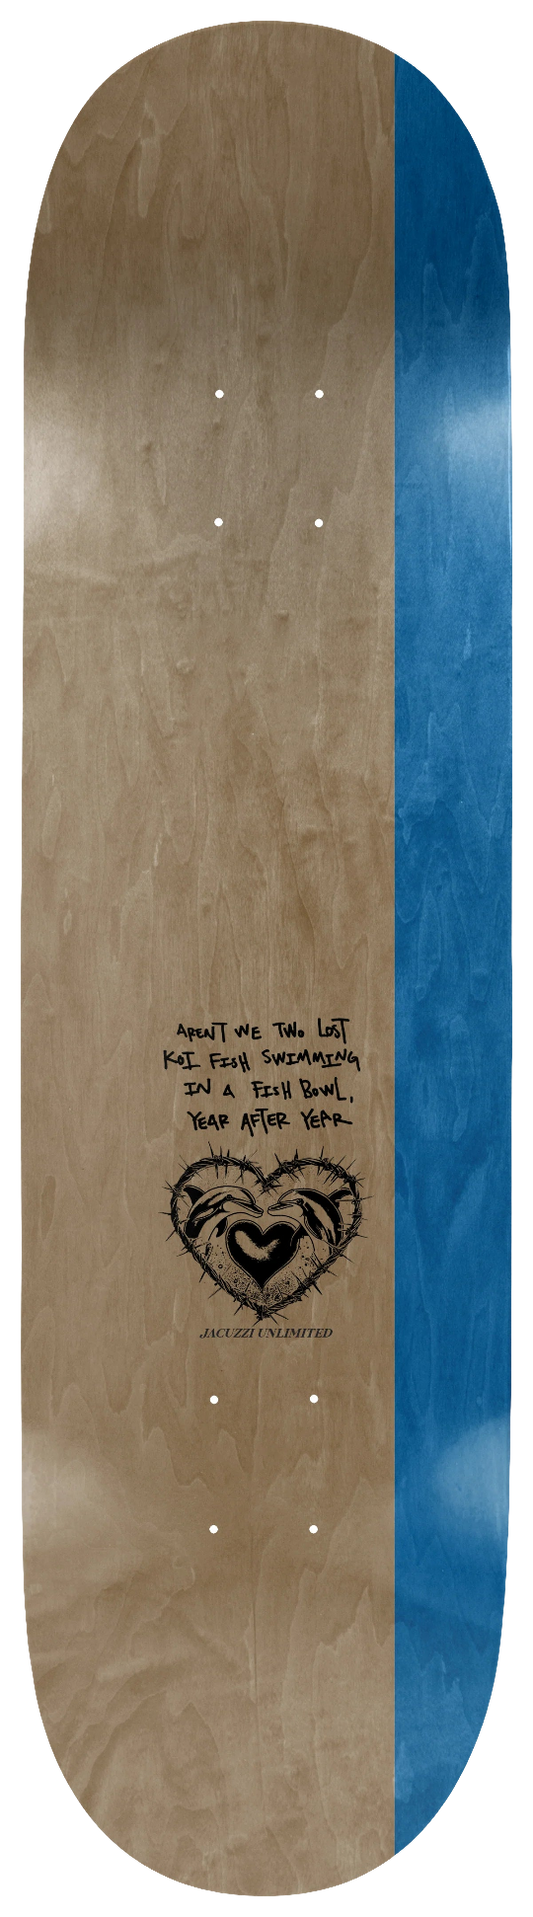 ARENT WE TWO LOST
KOI FISH SWIMMING
IN A FISH BOWL,
YEAR AFTER YEAR
JACUZZI UNLIMITED